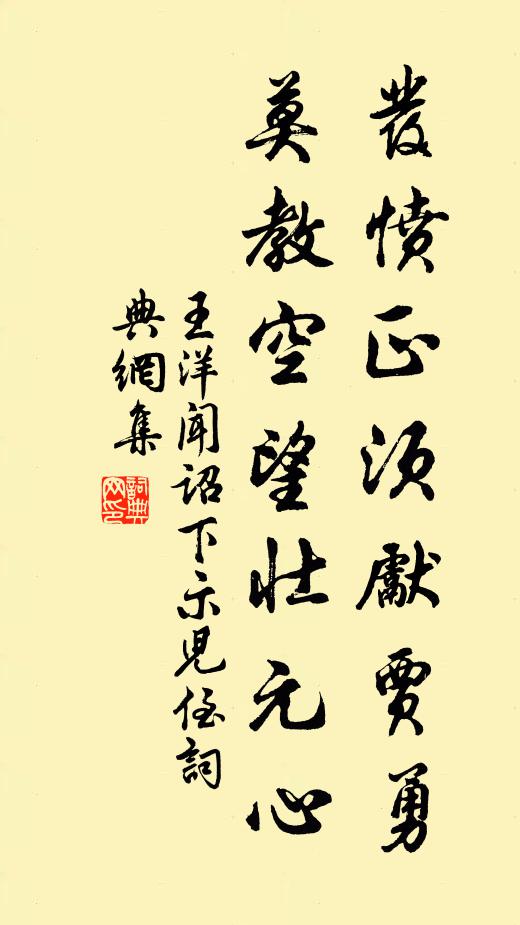 發憤正須獻賈勇
莫教空望壯元心
王洋聞詔下示兒侄詞
典網集
詞典
网印